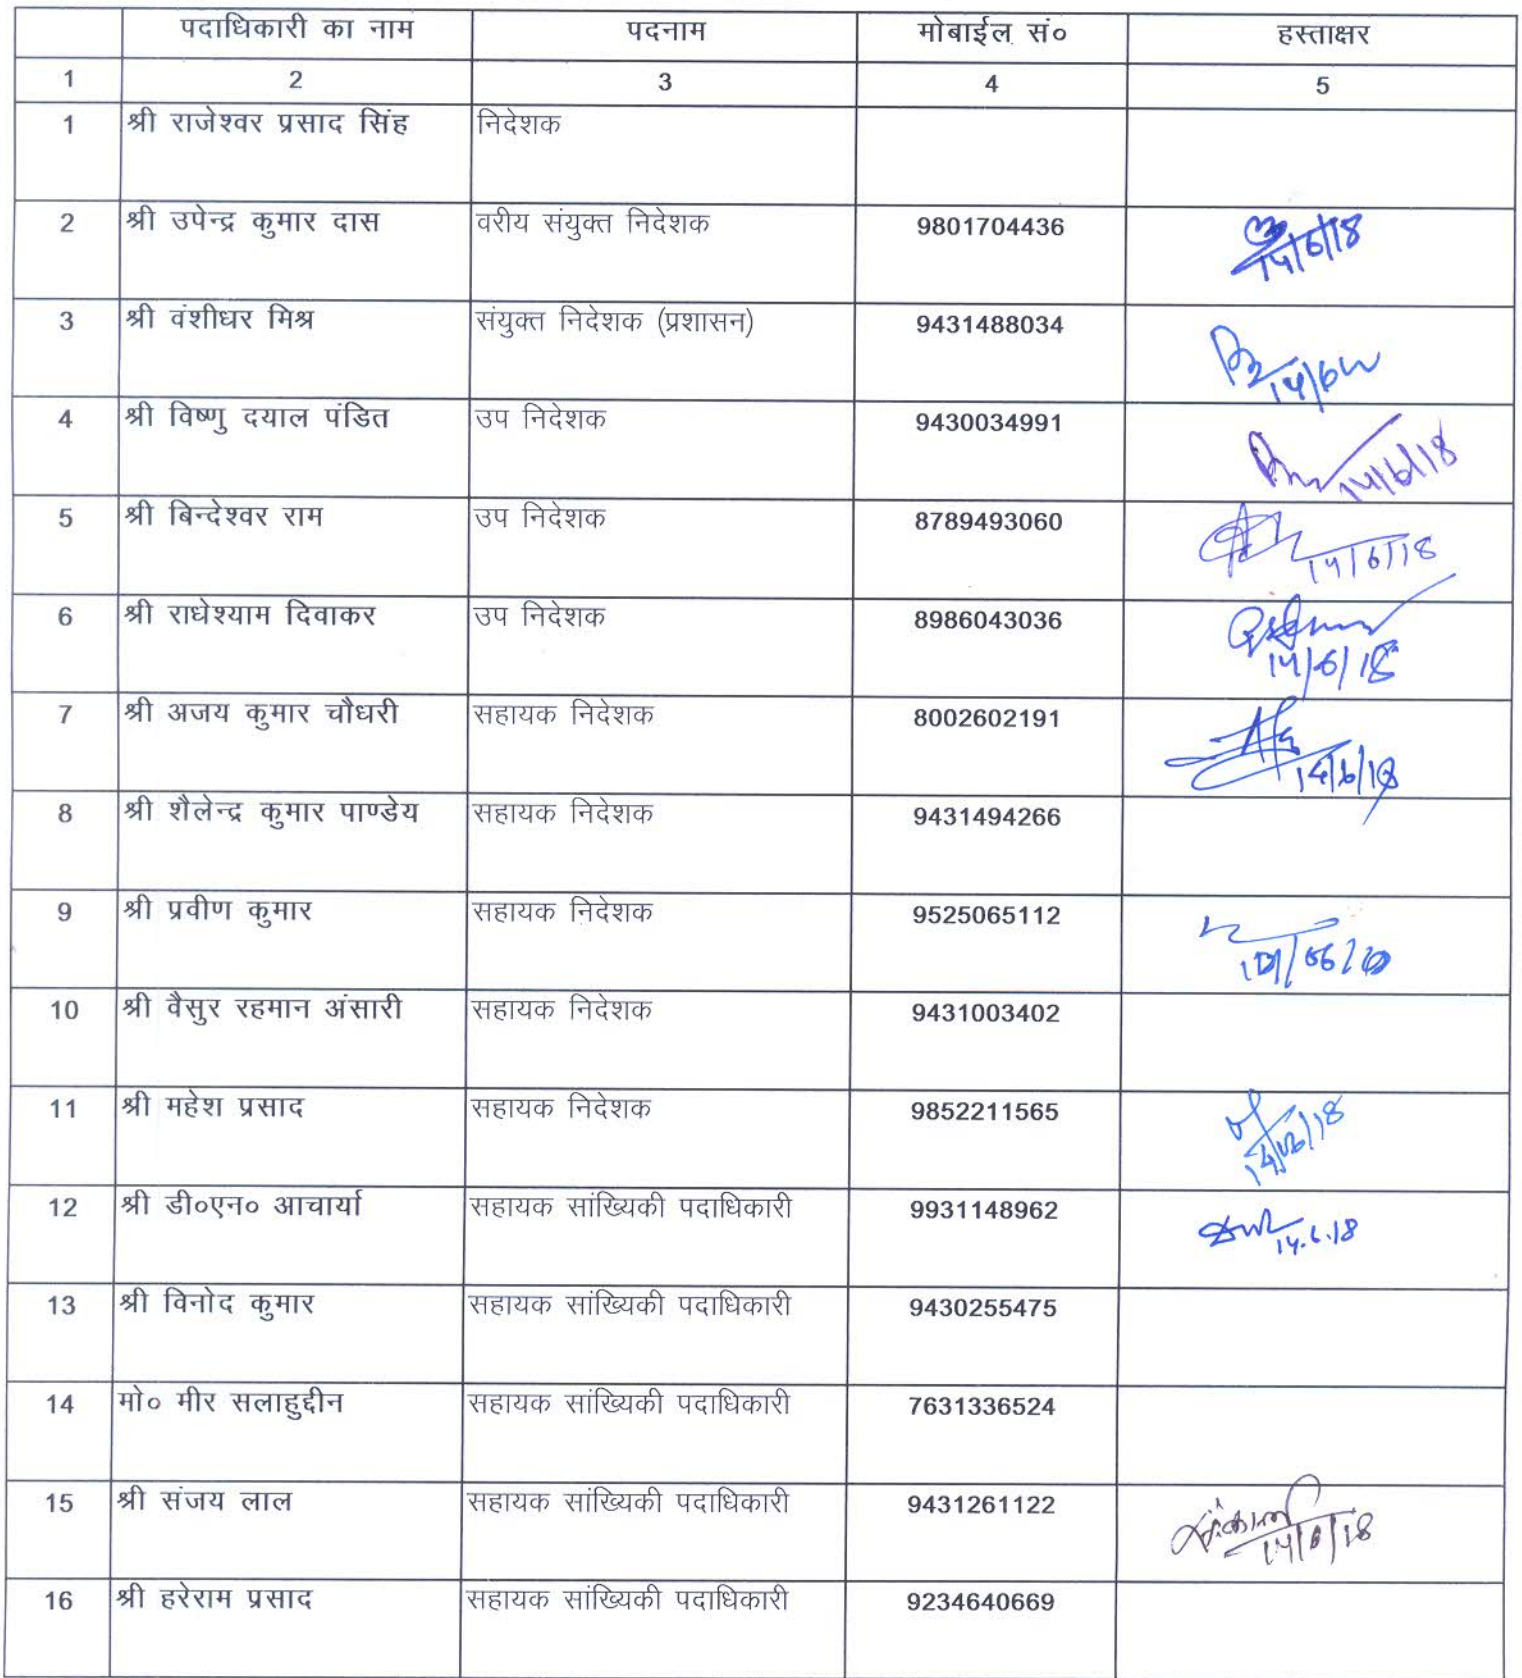 पदाधिकारी का नाम पदनाम मोबाईल सं० हस्ताक्षर
1 2 3 4 5
1 श्री राजेश्वर प्रसाद सिंह निदेशक
2 श्री उपेन्द्र कुमार दास वरीय संयुक्त निदेशक 9801704436 14/6/18
3 श्री वंशीधर मिश्र संयुक्त निदेशक (प्रशासन) 9431488034
4 श्री विष्णु दयाल पंडित उप निदेशक 9430034991 14/6/18
5 श्री बिन्देश्वर राम उप निदेशक 8789493060 14/6/18
6 श्री राधेश्याम दिवाकर उप निदेशक 8986043036 14/6/18
7 श्री अजय कुमार चौधरी सहायक निदेशक 8002602191 14/6/18
8 श्री शैलेन्द्र कुमार पाण्डेय सहायक निदेशक 9431494266
9 श्री प्रवीण कुमार सहायक निदेशक 9525065112
10 श्री वैसुर रहमान अंसारी सहायक निदेशक 9431003402
11 श्री महेश प्रसाद सहायक निदेशक 9852211565 14/06/18
12 श्री डी०एन० आचार्या सहायक सांख्यिकी पदाधिकारी 9931148962 14.6.18
13 श्री विनोद कुमार सहायक सांख्यिकी पदाधिकारी 9430255475
14 मो० मीर सलाहुद्दीन सहायक सांख्यिकी पदाधिकारी 7631336524
15 श्री संजय लाल सहायक सांख्यिकी पदाधिकारी 9431261122 14/6/18
16 श्री हरेराम प्रसाद सहायक सांख्यिकी पदाधिकारी 9234640669